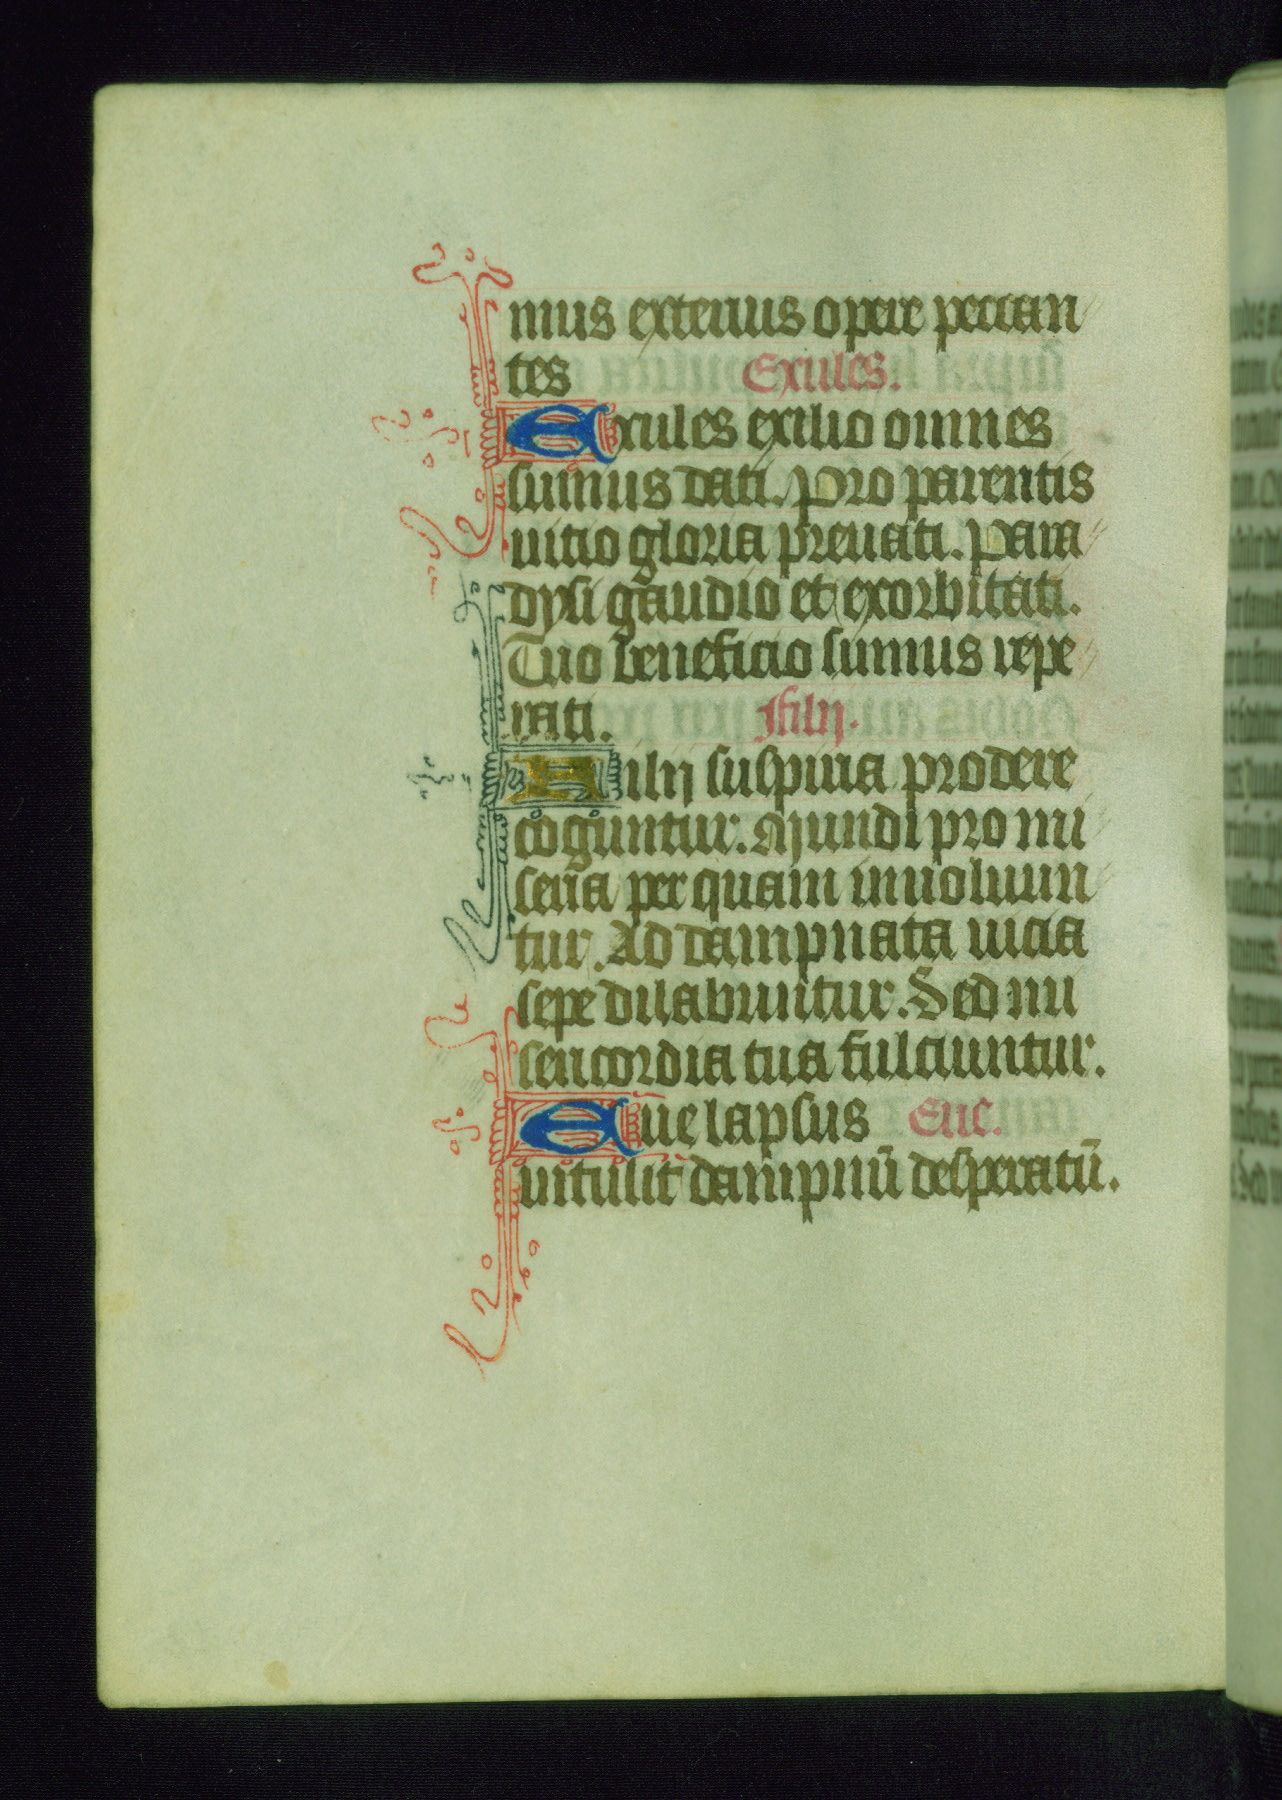 mus exterius opere peccan
tes Exules.
Exules exilio omnes
sumus dati. Pro parentis
uitio gloria preuati. Para
dysi gaudio et exorbitati.
Tuo beneficio sumus repe
rati. Filij.
Filij suspiria prodere
coguntur. Mundi pro mi
seria per quam inuoluun
tur. Ad dampnata uicia
sepe dilabuntur. Sed mi
sericordia tua fulciuntur.
Eue lapsus Eue.
uitulit dampnū desperatū.